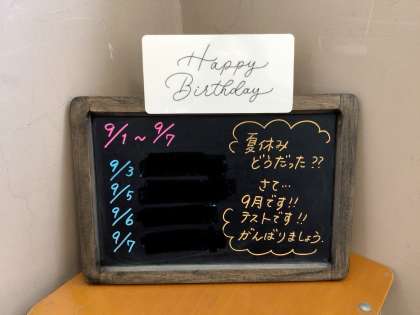 Happy
Birthday
9/1~9/7
9/3
9/5
9/6
9/7
夏休み
どうだった??
さて…
9月です!!
テストです!!
がんばりましょう.